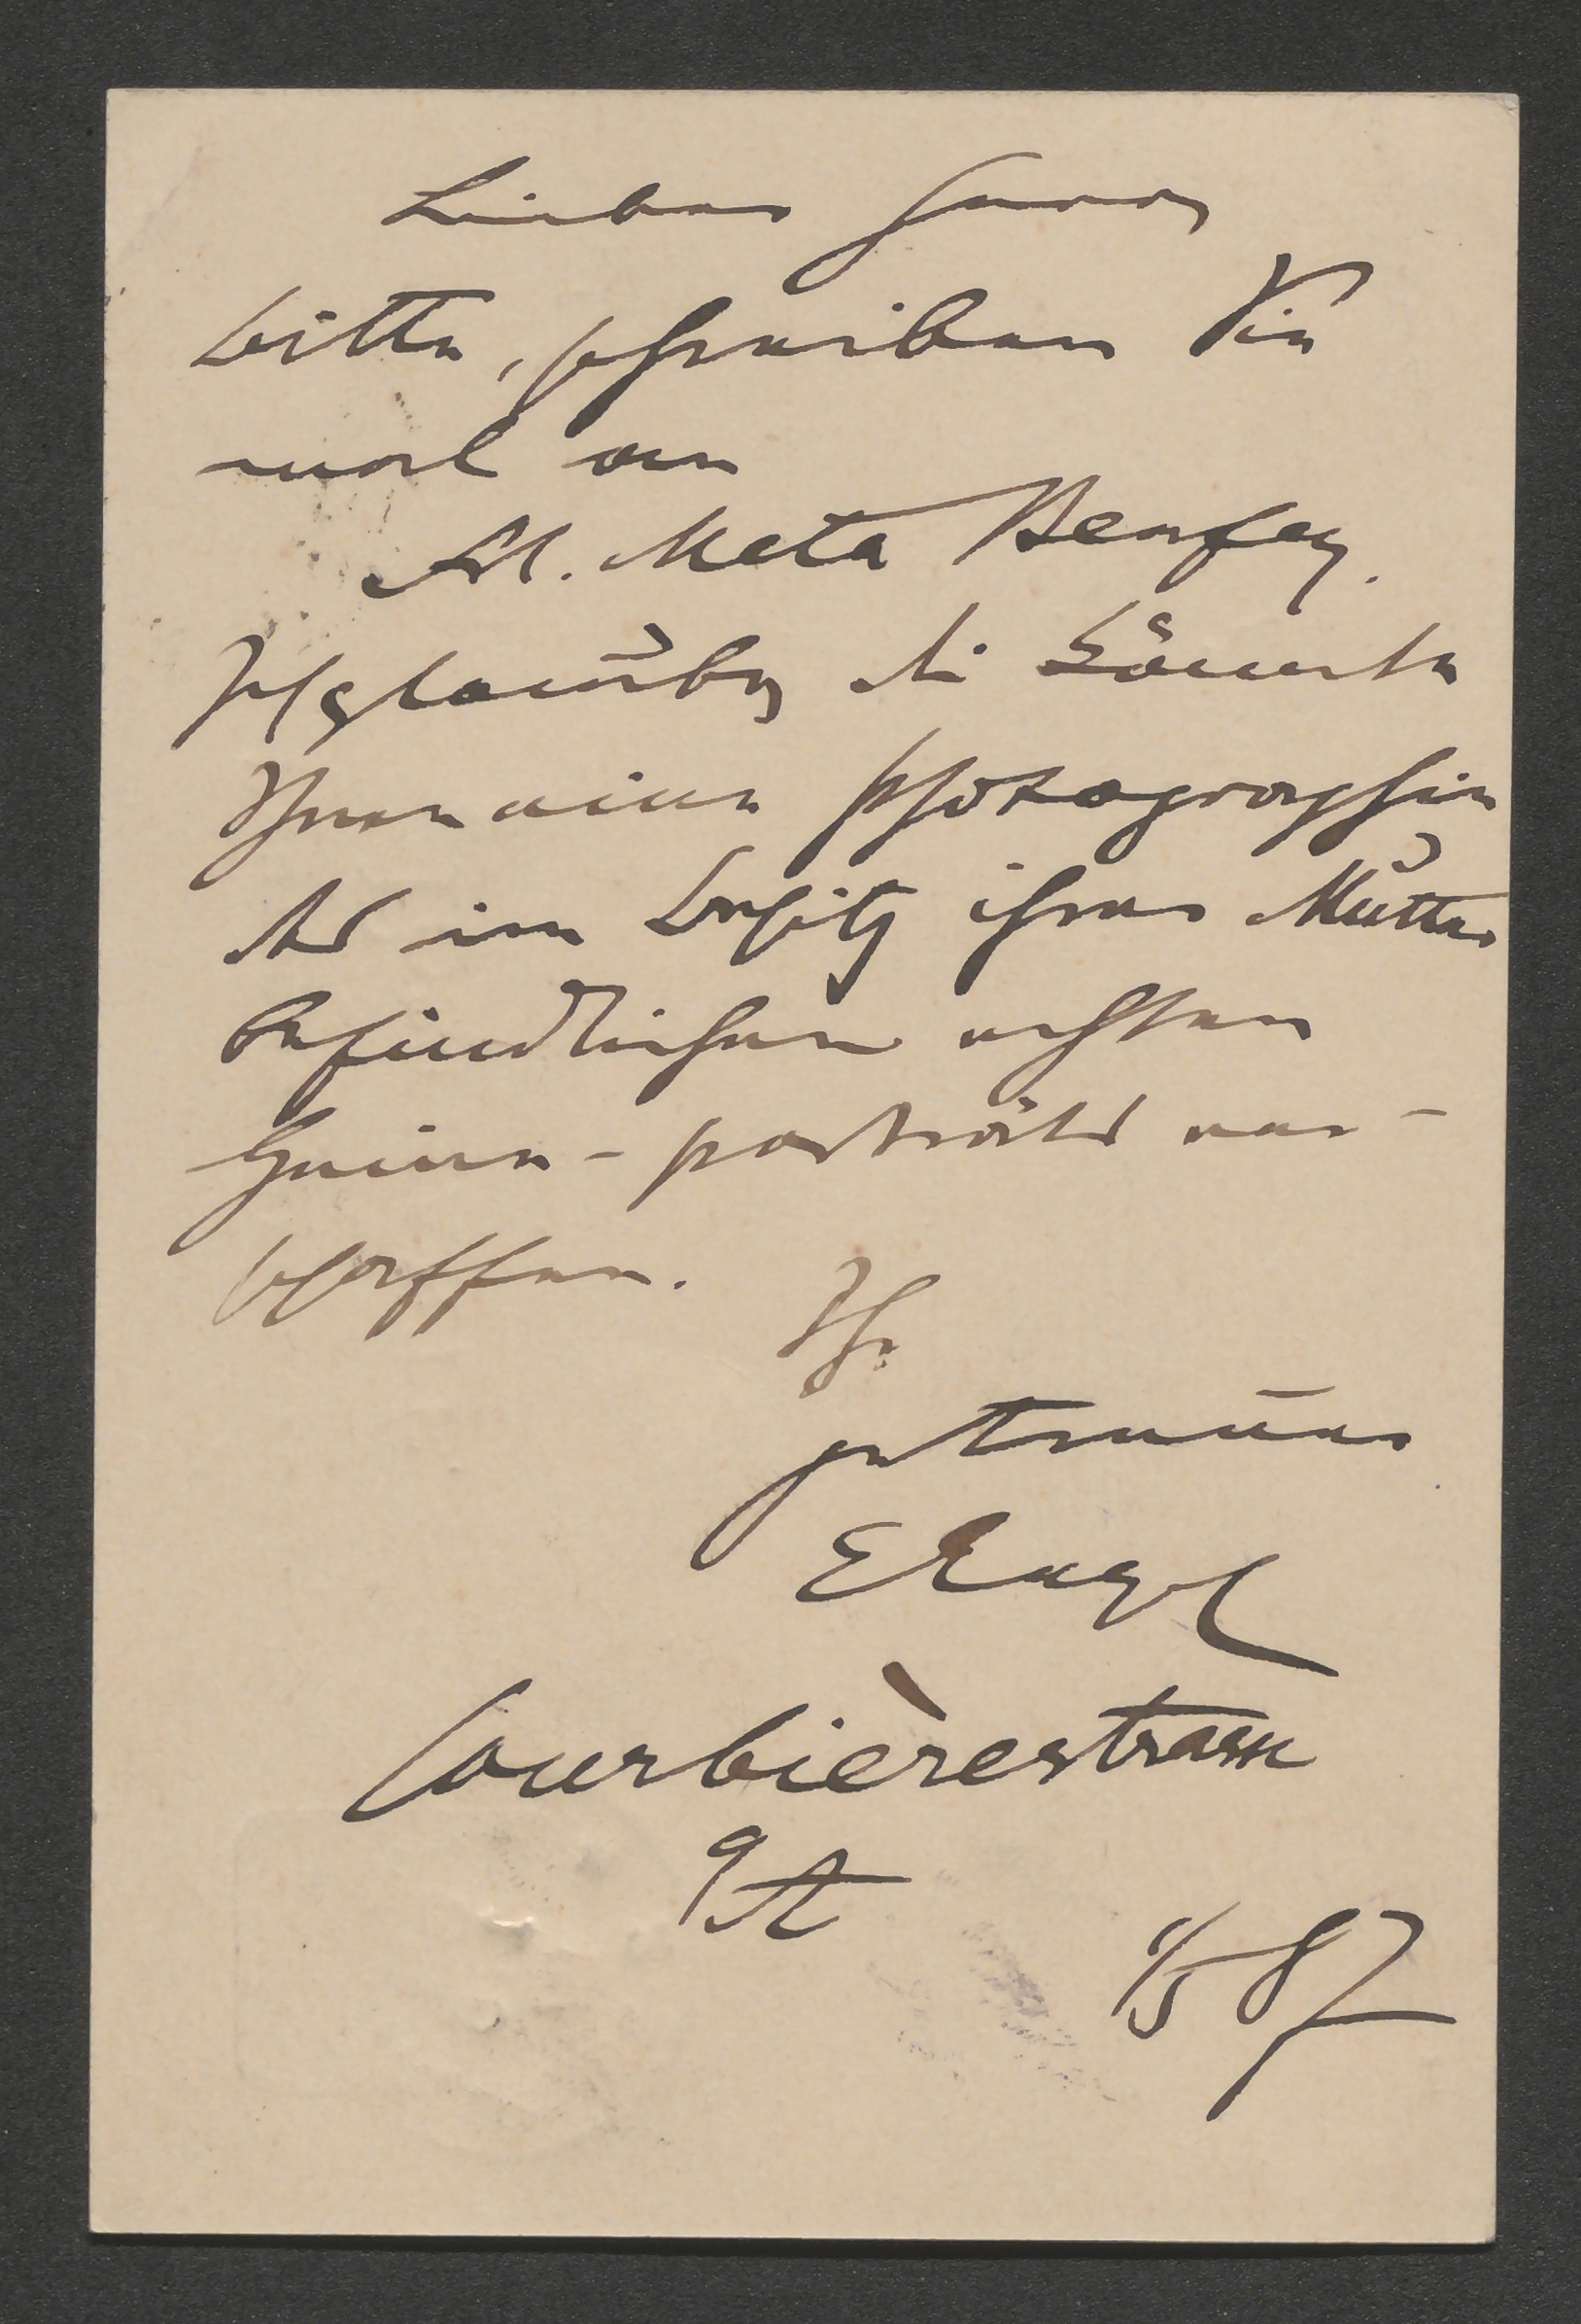 Lieber Freund
bitte, schreiben Sie
mal an
Frl. Meta Benfey.
Ich glaube, die könnte
Ihnen eine Photographie
des im Besitz ihrer Mutter
befindlichen echten
Heine-porträts ver-
schaffen.
Ihr
getreuer
EEngel
Courbièrestrasse
9A
1/5 87